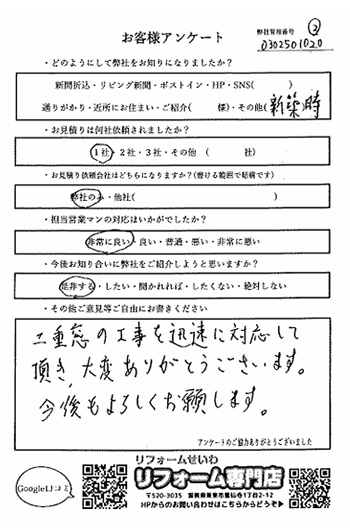 お客様アンケート
弊社管理番号 ②
0302501020
・どのようにして弊社をお知りになりましたか?
新聞折込・リビング新聞・ポストイン・HP・SNS( )
通りがかり・近所にお住まい・ご紹介( 様)・その他(新築時
・お見積りは何社依頼されましたか?
1社・2社・3社・その他 ( 社)
・お見積り依頼会社はどちらになりますか?(書ける範囲で結構です)
弊社のみ・他社( )
・担当営業マンの対応はいかがでしたか?
非常に良い・良い・普通・悪い・非常に悪い
・今後お知り合いに弊社をご紹介しようと思いますか?
是非する・したい・聞かれれば・したくない・絶対しない
・その他ご意見等ご自由にお書きください
二重窓の工事を迅速に対応して
頂き、大変ありがとうございます。
今後もよろしくお願します。
アンケートのご協力ありがとうございました
Google口コミ
リフォームせいわ
リフォーム専門店
〒520-3035 滋賀県栗東市霊仙寺1丁目2-12
HPからのお問い合わせはこちらからどうぞ